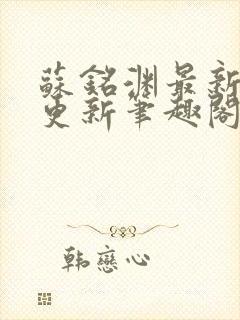 蘇銘淵最新
更新筆趣閣
韩戀心